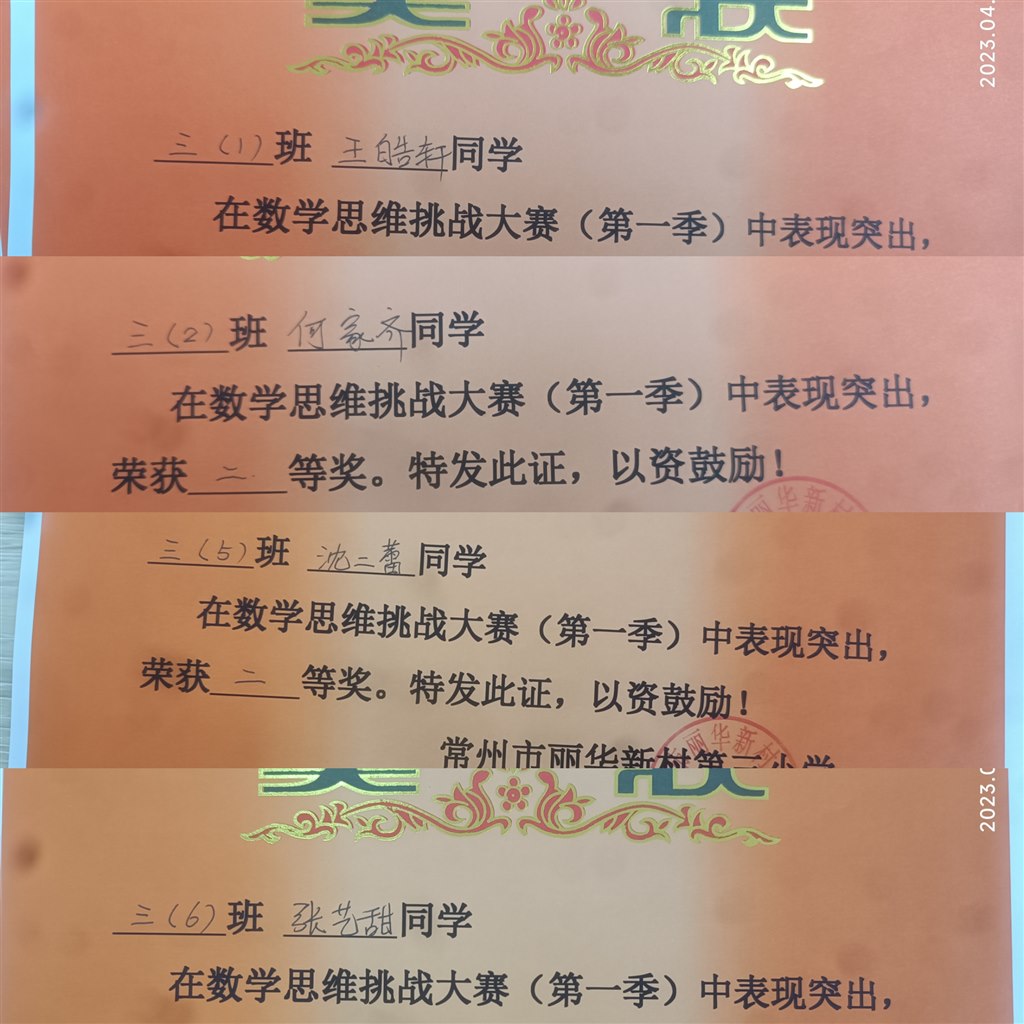 2023.04.
三（1）班 王皓轩同学
在数学思维挑战大赛（第一季）中表现突出，
三（2）班 何家齐同学
在数学思维挑战大赛（第一季）中表现突出，
荣获二等奖。特发此证，以资鼓励！
丽华新村
三（5）班 沈二蕾同学
在数学思维挑战大赛（第一季）中表现突出，
荣获二等奖。特发此证，以资鼓励！
丽华新村
常州市丽华新村第二小学
2023.0
三（6）班 张艺甜同学
在数学思维挑战大赛（第一季）中表现突出，